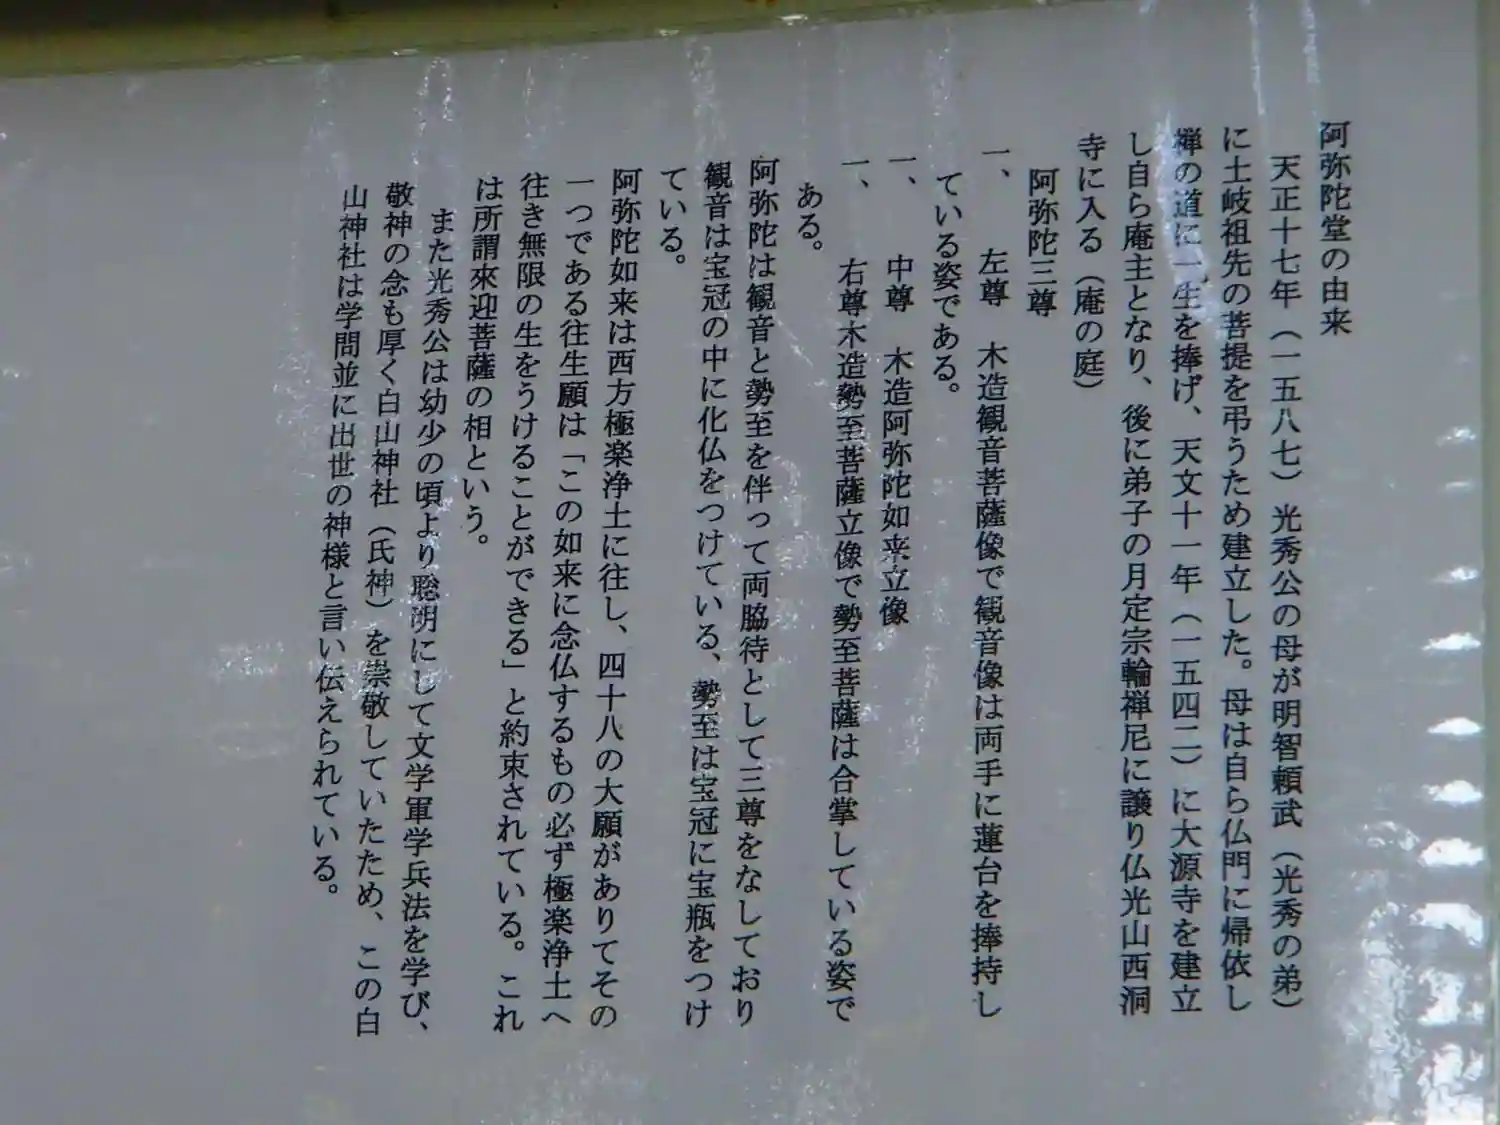 阿弥陀堂の由来
天正十七年（一五八七）光秀公の母が明智頼武（光秀の弟）
に土岐祖先の菩提を弔うため建立した。母は自ら仏門に帰依し
禅の道に一生を捧げ、天文十一年（一五四二）に大源寺を建立
し自ら庵主となり、後に弟子の月定宗輪禅尼に譲り仏光山西洞
寺に入る（庵の庭）
阿弥陀三尊
一、　左尊　木造観音菩薩像で観音像は両手に蓮台を捧持し
ている姿である。
一、　中尊　木造阿弥陀如来立像
一、　右尊木造勢至菩薩立像で勢至菩薩は合掌している姿で
ある。
阿弥陀は観音と勢至を伴って両脇待として三尊をなしており
観音は宝冠の中に化仏をつけている、勢至は宝冠に宝瓶をつけ
ている。
阿弥陀如来は西方極楽浄土に往し、四十八の大願がありてその
一つである往生願は「この如来に念仏するもの必ず極楽浄土へ
往き無限の生をうけることができる」と約束されている。これ
は所謂來迎菩薩の相という。
また光秀公は幼少の頃より聡明にして文学軍学兵法を学び、
敬神の念も厚く白山神社（氏神）を崇敬していたため、この白
山神社は学問並に出世の神様と言い伝えられている。